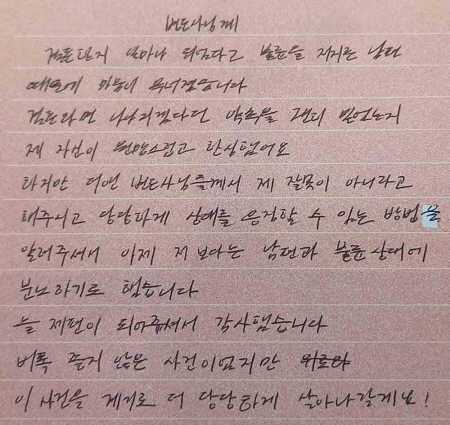 변호사님께
결혼한지 얼마나 되었다고 불륜을 저지른 남편
때문에 마음이 무너졌습니다
결혼하면 나아지겠다던 약속을 괜히 믿었는지
제 자신이 원망스럽고 한심했어요
하지만 이번 변호사님들께서 제 잘못이 아니라고
해주시고 당당하게 상대를 응징할 수 있는 방법을
알려주셔서 이제 저 보다는 남편과 불륜상대에
분노하기로 했습니다
늘 제편이 되어주셔서 감사했습니다
비록 좋지 않은 사건이었지만
이 사건을 계기로 더 당당하게 살아나갈게요!